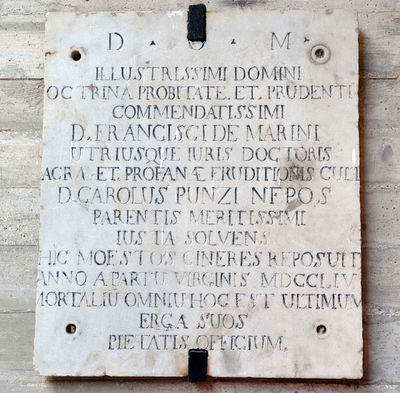 D . O . M .
ILLUSTRISSIMI DOMINI
OCTRINA PROBITATE. ET. PRUDENTI
COMMENDATISSIMI
D. FRANCISCI DE MARINI
UTRIUSQUE IURIS DOCTORIS
ACRA. ET. PROFANÆ ERUDITIONIS CULT
D. CAROLUS PUNZI NEPOS
PARENTIS MERITISSIMI
IUSTA SOLVENS
HIC MOESTOS CINERES REPOSUIT
ANNO A PARTU VIRGINIS MDCCLIV
MORTALIU OMNIU HOC EST ULTIMUM
ERGA SUOS
PIETATIS OFFICIUM.